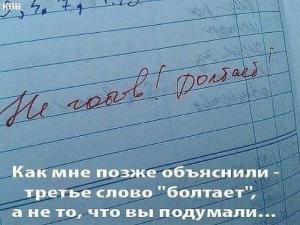 КВН
5, 4. 7, 1.
Не готов! Болтает!
Как мне позже объяснили -
третье слово "болтает",
а не то, что вы подумали...